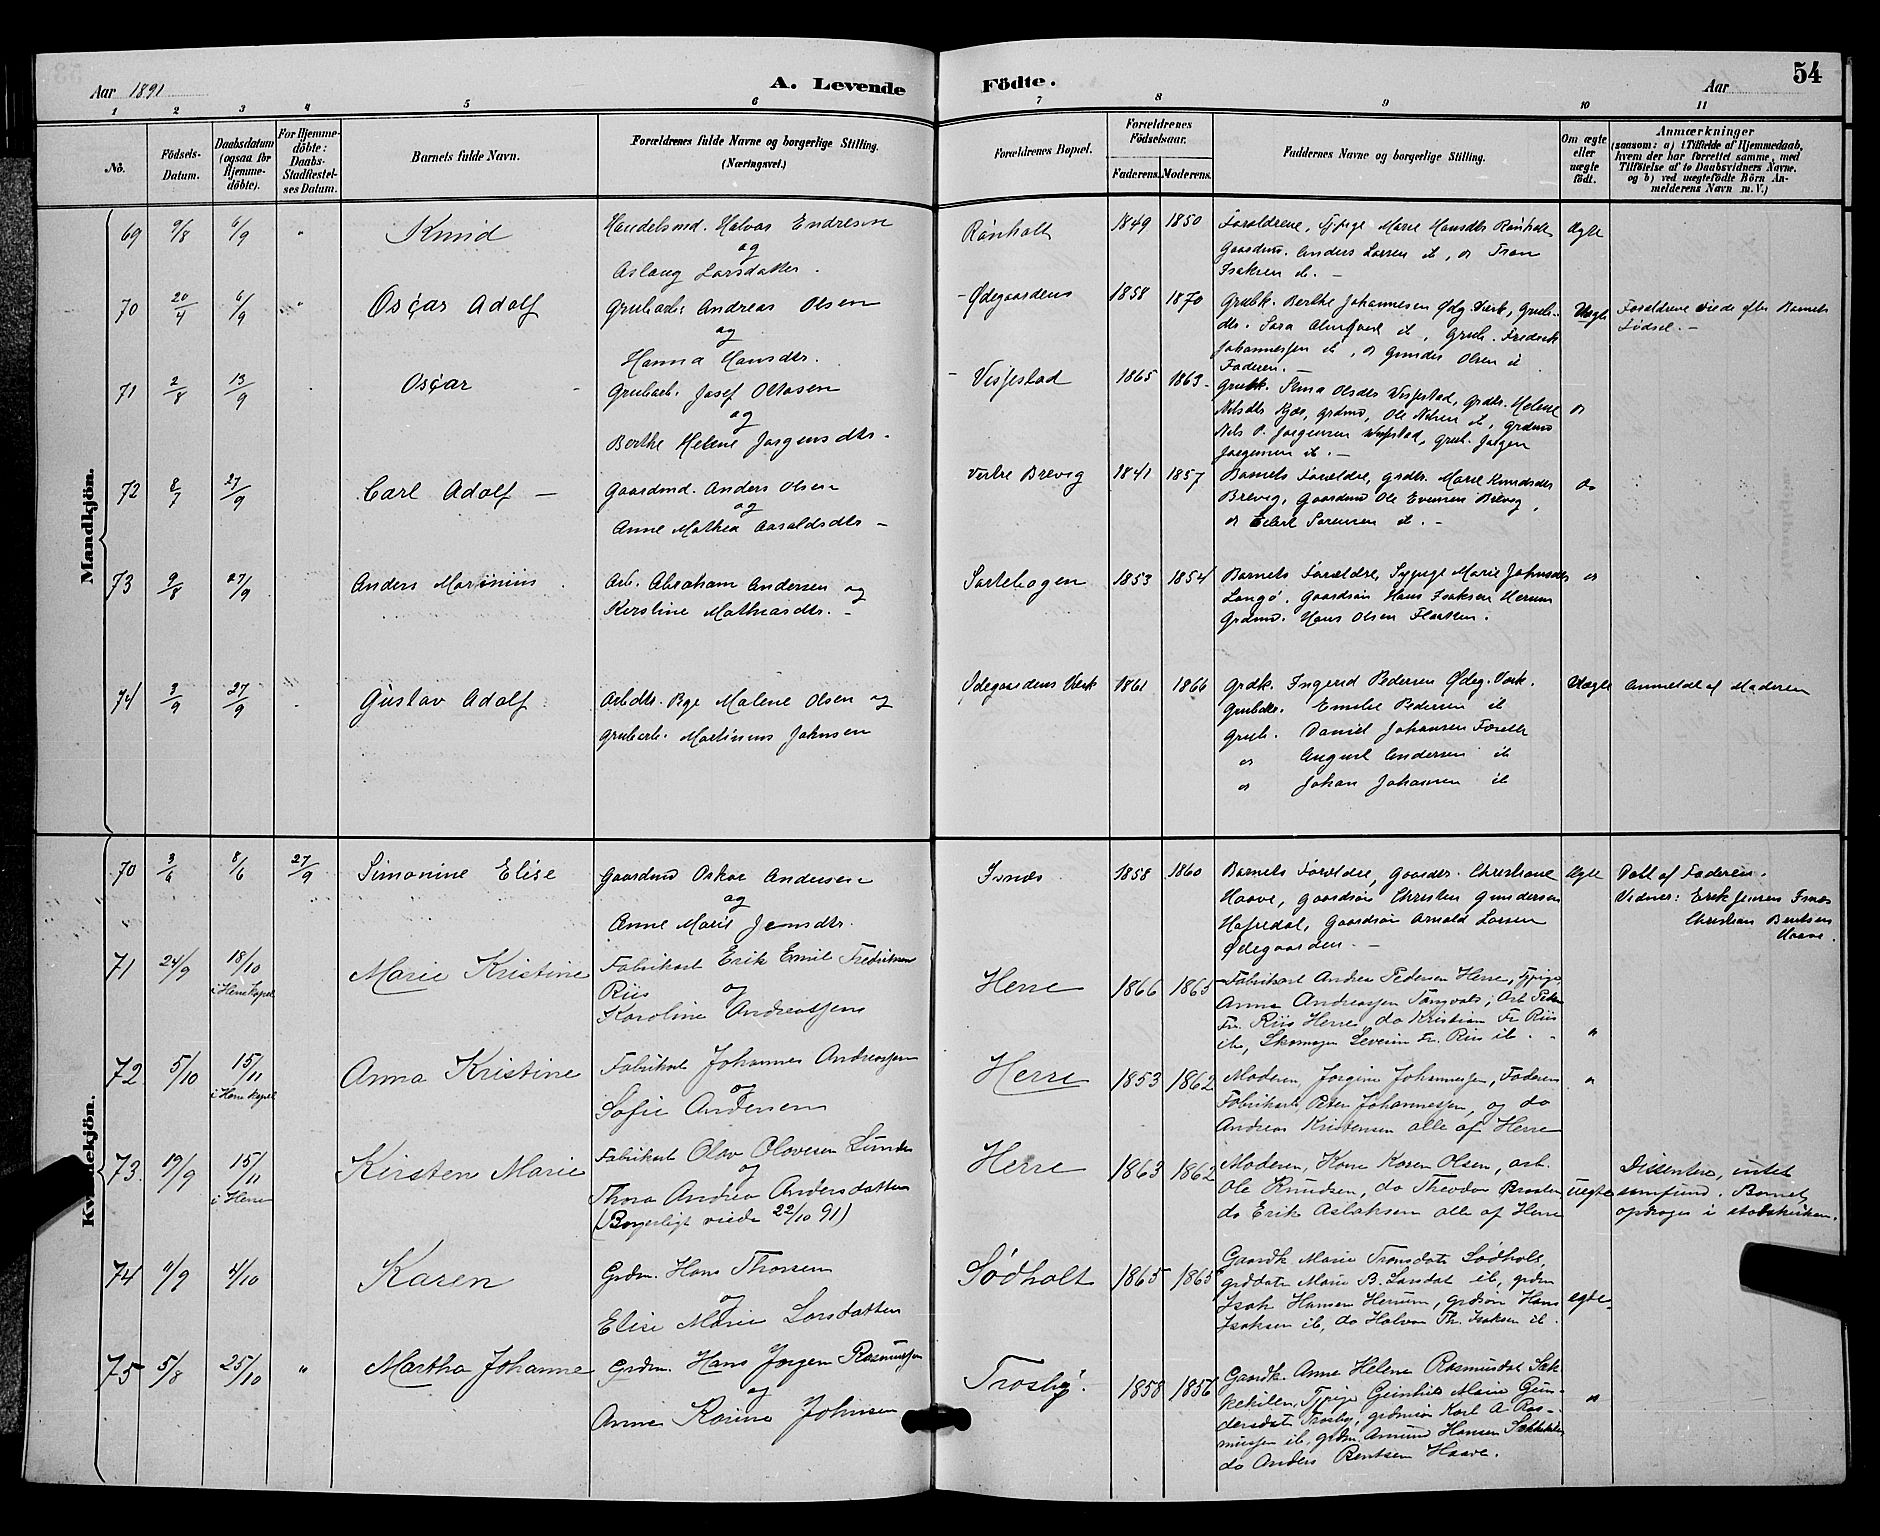 Aar 1891
A. Levende
Födte.
Aar
54
1 2 3 4 5 6 7 8 9 10 11
No.
Födsels-
Datum.
Daabsdatum
(ogsaa for
Hjemme-
döbte).
For Hjemme-
döbte:
Daabs-
Stadfæstel-
ses Datum.
Barnets fulde Navn.
Forældrenes fulde Navne og borgerlige Stilling.
(Næringsvei.)
Forældrenes Bopæl.
Forældrenes
Födselsaar.
Faderens. Moderens.
Faddernes Navne og borgerlige Stilling.
Om ægte
eller
uægte
födt.
Anmærkninger
(saasom: a) i Tilfælde af Hjemmedaab,
hvem der har forrettet samme, med
Tilföielse af to Daabsvidners Navne,
og b) ved uægtefödte Börn An-
melderens Navn m. V.)
Mandkjön.
69 9/8 6/9 " Knud
Handelsmd. Halvor Endresen
og
Aslaug Larsdatter.
Rönholt 1849 1850
Foraldrene, Tjpige Marie Hansdtr Rönholt
Gaardm. Anders Larsen ib, og Tron
Isaksen ib. –
Ægte
70 20/4 6/9 " Oscar Adolf
Grubearb. Andreas Olsen
og
Hanna Hansdtr.
Ødegaardens 1858 1870
Grubk. Berthe Johannesen Ødg. Verk, Grub-
dtr. Sara ib, Grub. Frederik
Johannesen ib, og Gunder Olsen ib
Faderen.
Uægte
Foraldrene viede efter Barnets
Födsel. –
71 2/8 13/9 Oscar
Grubearb. Josef Ottosen
og
Berthe Helene Jørgensdtr.
Vissestad 1865 1863
Grubk. Olsdtr Vissestad, grdtr. Helene
Nilsdtr grdmd, Ole Nilsen ib, Grdmd
Nels P. Jorgensen Vissestad, Grub. Jørgen
Jørgensen ib. –
do
72 8/7 27/9 Carl Adolf –
Gaardmd. Anders Olsen
og
Anne Mathea Aaraldsdtr –
Vestre Brevig 1841 1857
Barnets Foraldre, grdtr. Marie Knudsdtr
Brevig, Gaardmd Ole Evensen Brevig,
og Edvard Sorensen ib. –
do
73 9/8 27/9 Anders Martinius
Arb. Abraham Andersen og
Kirstine Mathiasdtr. –
Sortehagen 1853 1854
Barnets Foraldre, Tjpige Marie Johnsdtr
Langö, Gaardsön Hans Isaksen Herum
Grdmd. Hans Olsen Flaaten.
do
74 3/9 27/9 Gustav Adolf
Arbdtr. Pge Malene Olsen og
grubearb. Martinus Johnsen
Ødegaardens Verk 1861 1866
Grdk. Ingerid Pedersen Ødeg. Verk.
Grubdtr. Emilie Pedersen ib
Grub. Daniel Johansen
do August Andersen ib
do Johan Johansen ib
Uægte
Anmeldt af Moderen
Kvindekjön.
70 3/6 8/6 27/9 Simonine Elise
Gaardmd Oskar Andersen
og
Anne Marie Jensdtr.
Isnæs 1858 1860
Barnets Foraldre, Gaarddtr. Christiane
Haave, Gaardsön Christen Gundersen
Hafredal, Gaardsön Arnold Larsen
Ødegaarden. –
Ægte
Döbt af Faderen.
Vidner: Erik Jensen Isnæs
Christian Bentsen
Haave.
71 24/9 18/10
i Herre Kapel
Marie Kristine
Fabrikarb Erik Emil Fredriksen
Riis
og
Karoline Andreassen
Herre 1866 1865
Fabrikarb Andreas Pedersen Herre, Tjpige
Anna Andreassen Tangvald, Arb Peder
Fr. Riis Herre, do Kristian Fr Riis
ib, Skomager Severin Fr. Riis ib.
"
72 5/10 15/11
i Herre Kapel
Anna Kristine
Fabrikarb Johannes Andreassen
og
Sofie Andersen
Herre 1853 1862
Moderen, Jorgine Johannessen, Faderen
Fabrikarb Peter Johannessen, og do
Andreas Kristensen alle af Herre
"
73 19/9 15/11
i Herre
Kirsten Marie
Fabrikarb Olav Olavesen Lunde
og
Thora Andrea Andersdatter
(Borgerligt viede 22/10 91)
Herre 1863 1862
Moderen, Kone Karen Olsen, arb.
Ole Knudsen, do Theodor Braaten
do Erik Aslaksen alle af Herre
Uegte
Dissentere, intet
samfund. Barnet
opdrages i statskirken.
74 9/9 4/10 Karen
Grdm. Hans Thorsen
og
Elise Marie Larsdatter
Södholt 1865 1865
Gaardk Marie Tronsdatr Södholt,
grddatr Marie B. Larsdat ib, grdm
Isak Hansen Herum, grdsön Hans
Isaksen ib, do Halvor Th. Isaksen ib.
egte.
75 5/8 25/10 " Martha Johanne
Grdm. Hans Jørgen Rasmussen
og
Anne Karine Johnsen
Trosby. 1858 1856
Gaardk. Anne Helene Rasmusdat Sæk-
kekilen, Tjpige Gunhild Marie Gun-
dersdat Trosby, grdmsön Karl A Ras-
mussen ib, grdm. Amund Hansen Sækkekilen
do Anders Bentsen Haave.
"